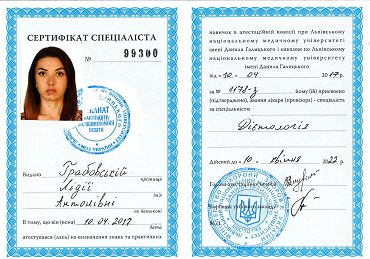 СЕРТИФІКАТ СПЕЦІАЛІСТА
№ 99300
ДЕКАНАТ
ФАКУЛЬТЕТУ
ПІСЛЯДИПЛОМНОЇ
ОСВІТИ
Видано Грабовській
прізвище
Лідії
ім'я
Антонівні
по батькові
В тому, що він (вона) 10.04.2017
дата
атестувався (лась) на визначення знань та практичних
навичок в атестаційній комісії при Львівському
національному медичному університеті
імені Данила Галицького і наказом по Львівському
національному медичному університету
імені Данила Галицького
від «10» 04 2017р.
за № 1178-з йому (їй) присвоєно
(підтверджено), звання лікаря (провізора) - спеціаліста
за спеціальністю
Дієтологія
Дійсний до 10 квітня 2022 р.
Голова атестаційної комісії